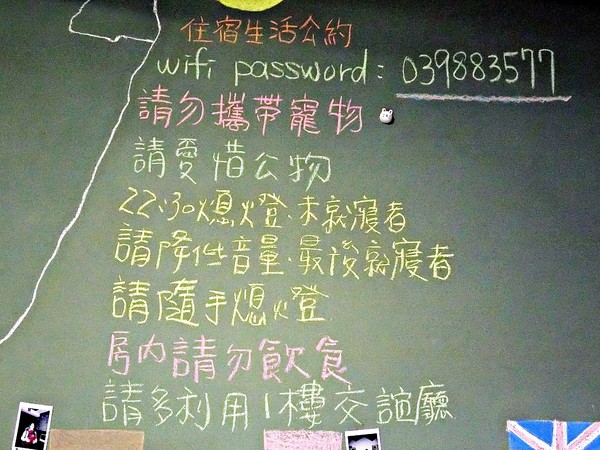 住宿生活公約
wifi password: 039883577
請勿攜帶寵物
請愛惜公物
22:30熄燈.未就寢者
請降低音量.最後就寢者
請隨手熄燈
房内請勿飲食
請多利用1樓交誼廳